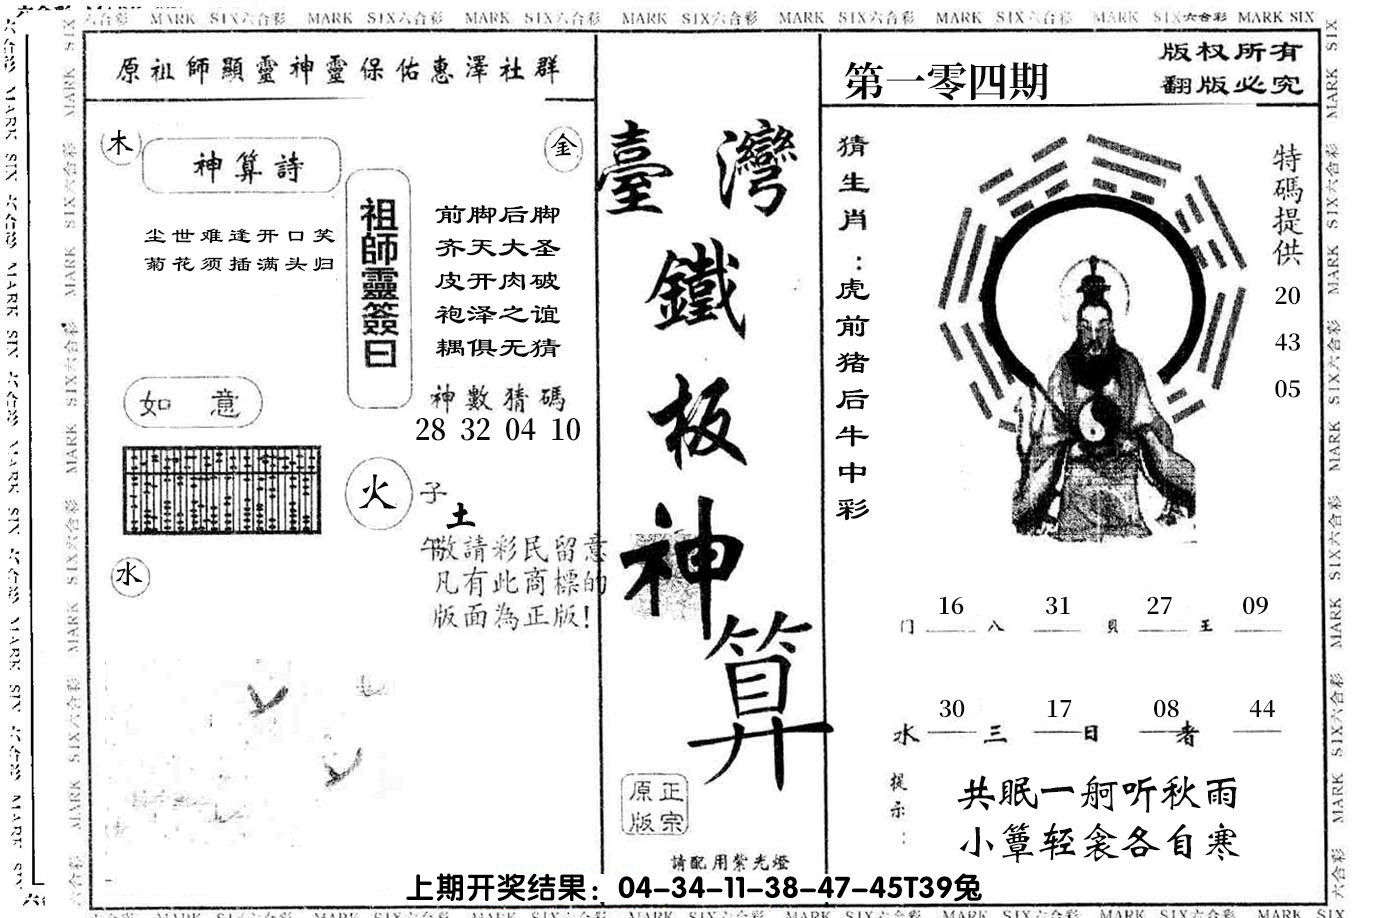 MARK SIX六合彩 MARK SIX六合彩 MARK SIX六合彩 MARK SIX六合彩 MARK SIX六合彩 MARK SIX六合彩 MARK SIX六合彩 MARK SIX
原祖師顯靈神靈保佑惠澤社群
木
金
神算詩
尘世难逢开口笑
菊花须插满头归
祖師靈簽曰
前脚后脚
齐天大圣
皮开肉破
袍泽之谊
耦俱无猜
神數猜碼
28 32 04 10
如 意
火
子
土
午
水
敬請彩民留意
凡有此商標的
版面為正版!
臺灣
鐵
板
神
算
正宗
原版
請配用紫光燈
第一零四期
版权所有
翻版必究
猜生肖:虎前猪后牛中彩
特碼提供
20
43
05
16 31 27 09
门 八 貝 王
30 17 08 44
水 三 日 者
提示:
共眠一舸听秋雨
小簟轻衾各自寒
上期开奖结果：04-34-11-38-47-45T39兔